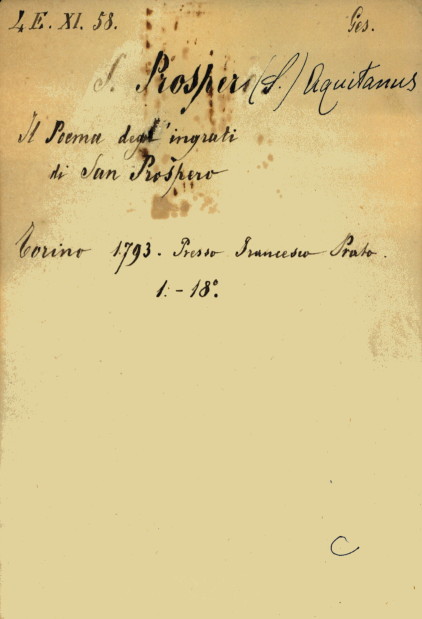 4 E. XI. 58. Ges.
S. Prosperi (S.) Aquitanus
Il Poema degl'ingrati
di San Prospero
Torino 1793. Presso Francesco Prato.
1.-18°.
C